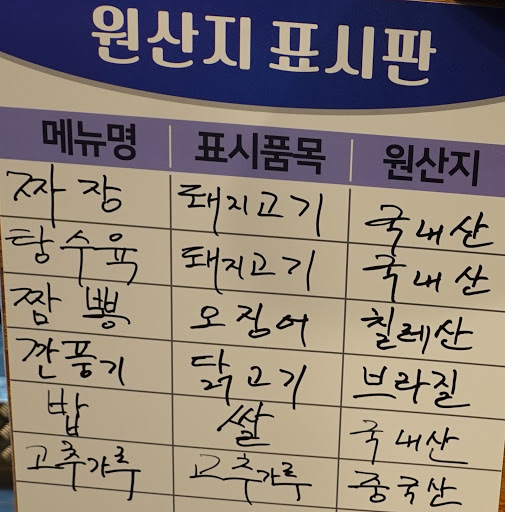 원산지 표시판
메뉴명 표시품목 원산지
짜장 돼지고기 국내산
탕수육 돼지고기 국내산
짬뽕 오징어 칠레산
깐풍기 닭고기 브라질
밥 쌀 국내산
고추가루 고추가루 중국산